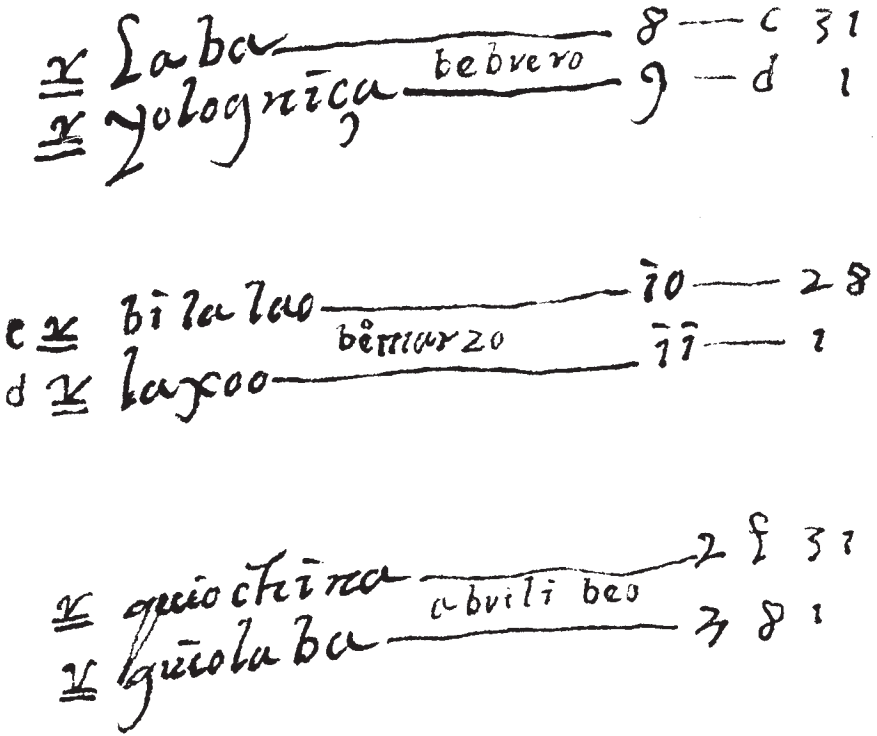 x Laba 8 — c 31
bebrero
x yologniça 9 — d 1
e x bilalao 10 — 28
bemarzo
d x laxoo 11 — 1
x quiochina 2 f 31
abrili beo
x guiolaba 3 8 1